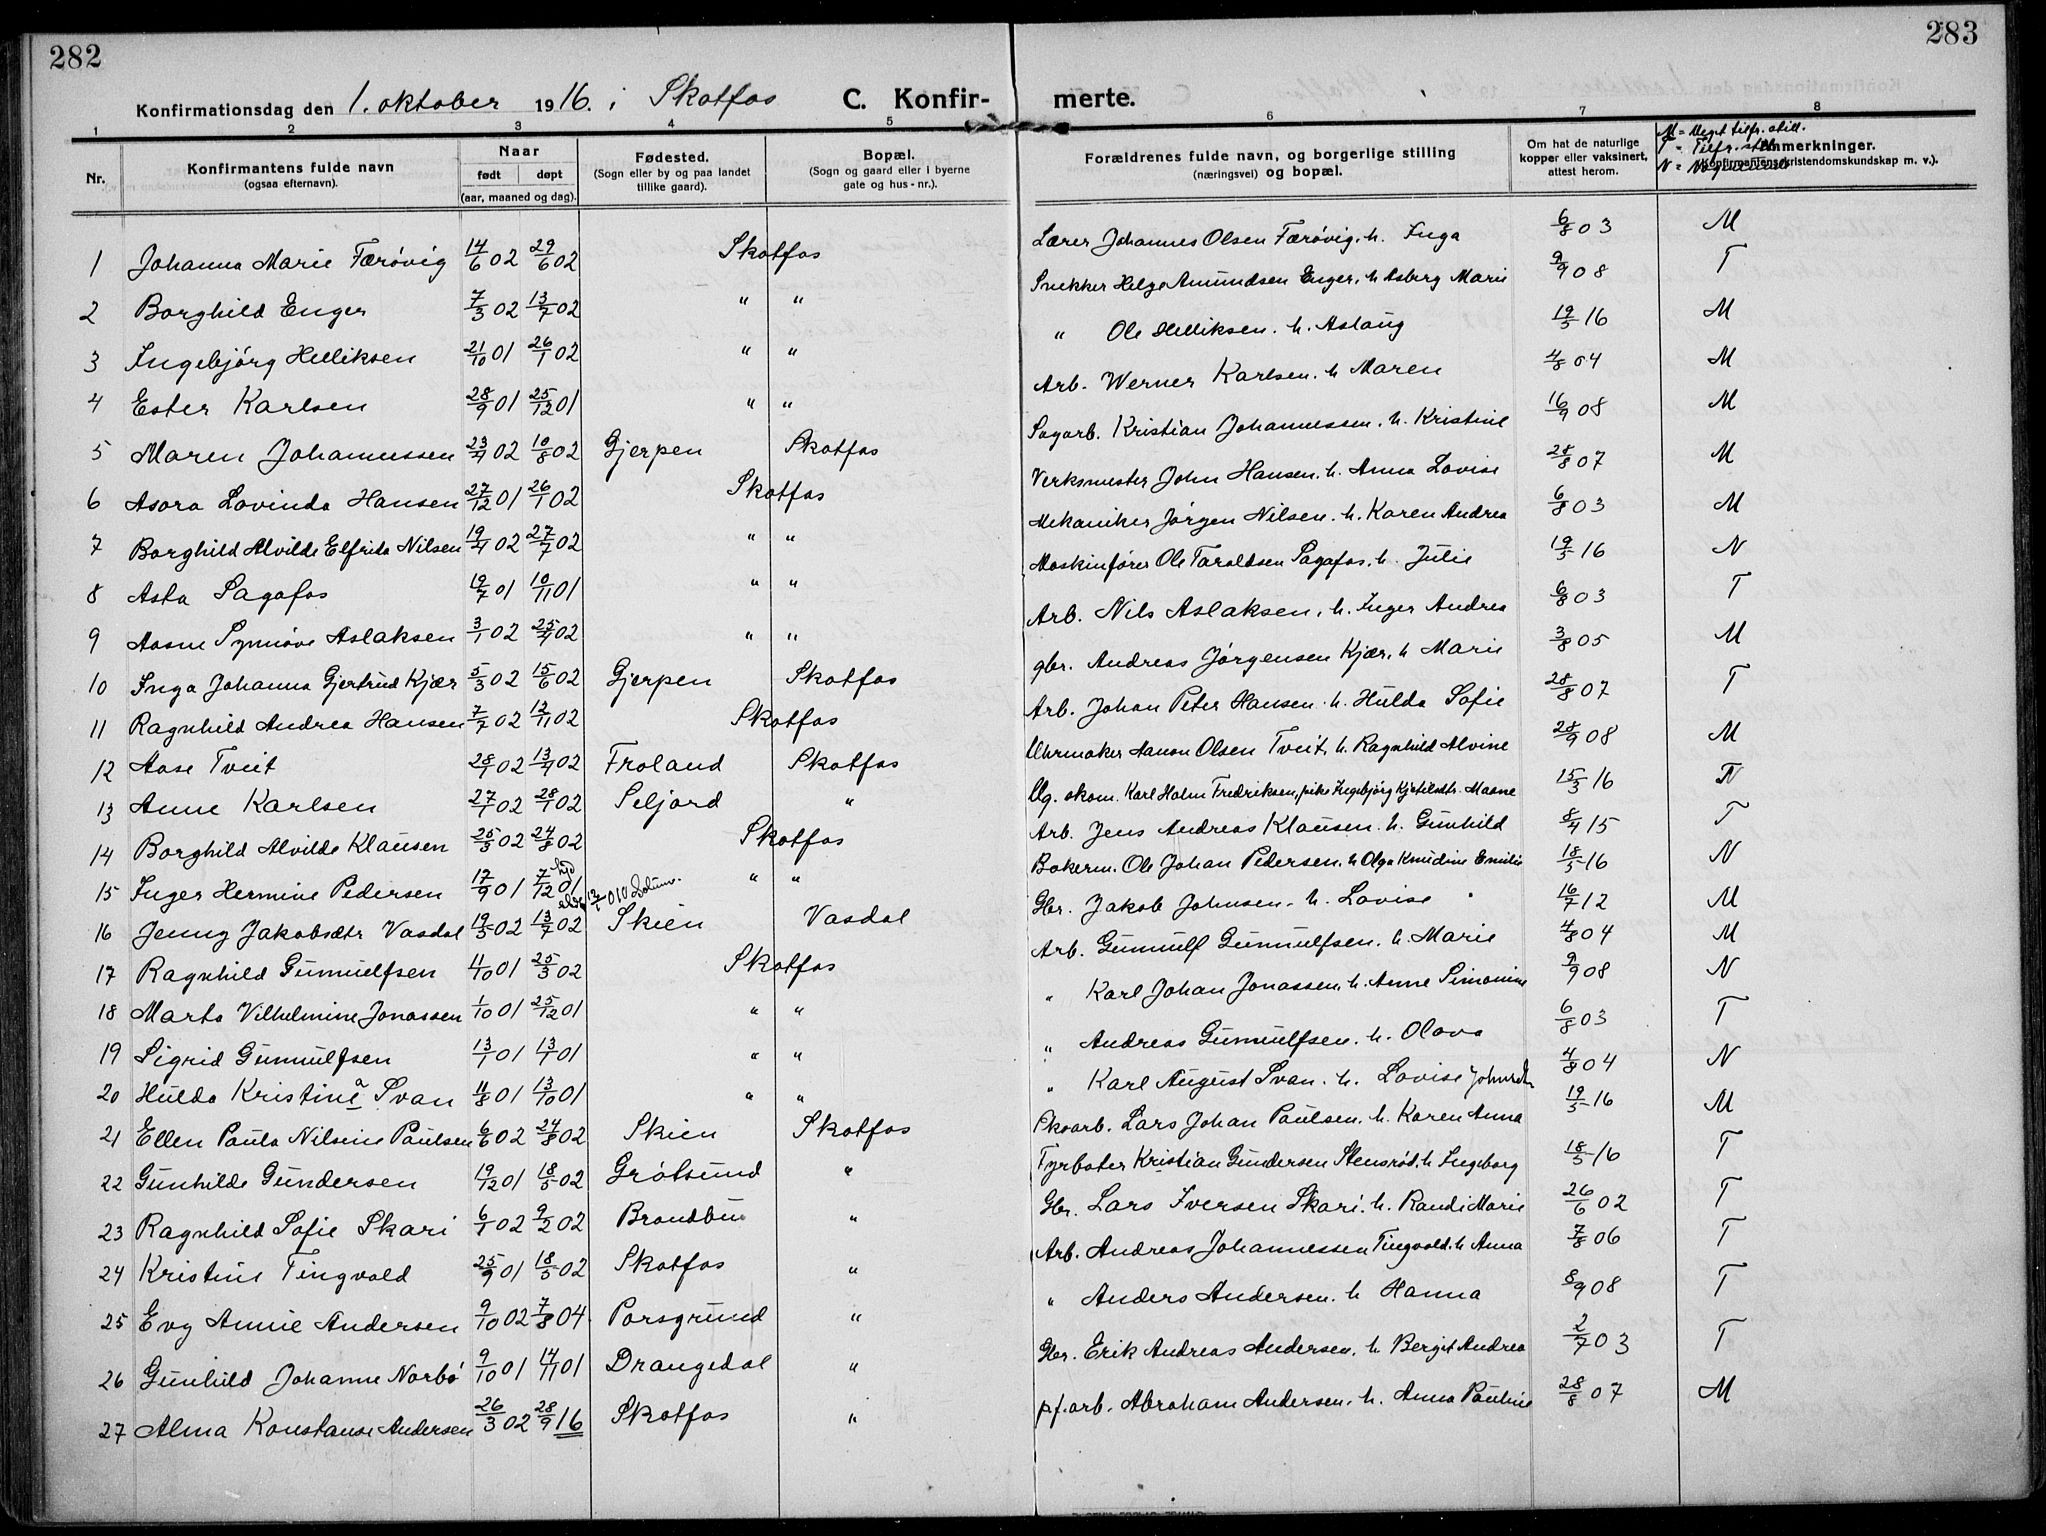 282
283
Konfirmationsdag den 1. oktober 1916. i Skotfos C. Konfir- merte.
1 2 3 4 5 6 7 8
Nr. Konfirmantens fulde navn (ogsaa efternavn). Naar født døpt (aar, maaned og dag). Fødested. (Sogn eller by og paa landet tillike gaard). Bopæl. (Sogn og gaard eller i byerne gate og hus-nr.). Forældrenes fulde navn, og borgerlige stilling (næringsvei) og bopæl. Om hat de naturlige kopper eller vaksinert, attest herom. Anmerkninger. (Konfirmantens kristendomskundskap m. v.).
M = Meget tilfr. still.
T = Tilfr. still.
N = Nogenlunde
1 Johanna Marie Færøvig 14/6 02 29/6 02 Skotfos Lærer Johannes Olsen Færøvig. h. Inga 6/8 03 M
2 Borghild Enger 7/3 02 13/7 02 " " Snekker Helge Amundsen Enger, h Asberg Marie 9/9 08 T
3 Ingebjørg Helliksen 21/10 01 26/1 02 " " " Ole Helliksen. h. Aslaug 19/5 16 M
4 Ester Karlsen 28/9 01 25/12 01 " " Arb. Werner Karlsen. h Maren 4/8 04 M
5 Maren Johannessen 23/4 02 10/8 02 Gjerpen Skotfos Sagarb. Kristian Johannessen. h. Kristine 16/9 08 M
6 Asora Lovinda Hansen 27/12 01 26/1 02 Skotfos Verksmester John Hansen. h. Anna Lovise 28/8 07 M
7 Borghild Alvilde Elfrida Nilsen 19/4 02 27/7 02 " " Mekaniker Jørgen Nilsen. h. Karen Andrea 6/8 03 M
8 Asta Sagafos 19/7 01 10/11 01 " " Maskinfører Ole Taraldsen Sagafos. h. Julie 19/5 16 N
9 Aasne Synnøve Aslaksen 3/1 02 25/4 02 " " Arb. Nils Aslaksen, h. Inger Andrea 6/8 03 T
10 Inga Johanna Gjertrud Kjær 5/3 02 15/6 02 Gjerpen Skotfos gbr. Andreas Jørgensen Kjær. h Marie 3/8 05 M
11 Ragnhild Andrea Hansen 7/7 02 12/11 02 Skotfos Arb. Johan Peter Hansen. h. Hulda Sofie 28/8 07 T
12 Aase Tveit 28/1 02 13/4 02 Froland Skotfos Uhrmaker Aanon Olsen Tveit, h. Ragnhild Alvine 28/9 08 M
13 Anne Karlsen 27/1 02 28/1 02 Seljord " Ug. økom. Karl Holm Fredriksen, pike Ingebjørg Kjetilsdtr. Maane 15/3 16 N
14 Borghild Alvilde Klausen 25/5 02 24/8 02 Skotfos Arb. Jens Andreas Klausen. h. Gunhild 8/4 15 T
15 Inger Hermine Pedersen 17/9 01 7/12 01 " " Bokerm. Ole Johan Pedersen, h Olga Knudine Emilie 18/5 16 N
16 Jenny Jakobsdtr Vasdal 19/5 02 13/7 02 Skien Vasdal Gbr. Jakob Johnsen. h. Lovise 16/7 12 M
17 Ragnhild Gunnulfsen 11/10 01 25/3 02 Skotfos Arb. Gunnulf Gunnulfsen. h. Marie 4/8 04 M
18 Marta Vilhelmine Jonassen 1/10 01 25/12 01 " " " Karl Johan Jonassen, h. Anne Simonine 9/9 08 N
19 Sigrid Gunnulfsen 13/1 01 13/1 01 " " " Andreas Gunnulfsen. h. Olava 6/8 03 T
20 Hulda Kristine a Svan 11/8 01 13/10 01 " " " Karl August Svan. h. Lovise Johnsdtr 4/8 04 N
21 Ellen Paula Nilsine Paulsen 6/6 02 24/8 02 Skien Skotfos Skoarb. Lars Johan Paulsen. h. Karen Anna 19/5 16 M
22 Gunhilde Gundersen 19/12 01 18/5 02 Grøtsund " Fyrbøter Kristian Gundersen Stensrød. h Ingeborg 18/5 16 T
23 Ragnhild Sofie Skari 6/1 02 9/2 02 Brandbu " Gbr. Lars Iversen Skari. h. Randi Marie 26/6 02 T
24 Kristine Tingvald 25/9 01 18/5 02 Skotfos " Arb. Andreas Johannessen Tingvald. h Anna 7/8 06 T
25 Evy Annie Andersen 9/10 02 7/8 04 Porsgrund " " Anders Andersen. h Hanna 8/9 08 T
26 Gunhild Johanne Norbø 9/10 01 17/11 01 Drangedal " Gbr. Erik Andreas Andersen, h Bergit Andrea 2/7 03 T
27 Alma Konstanse Andersen 26/3 02 28/9 16 Skotfos " pf.arb. Abraham Andersen, h. Anna Pauline 28/8 07 M